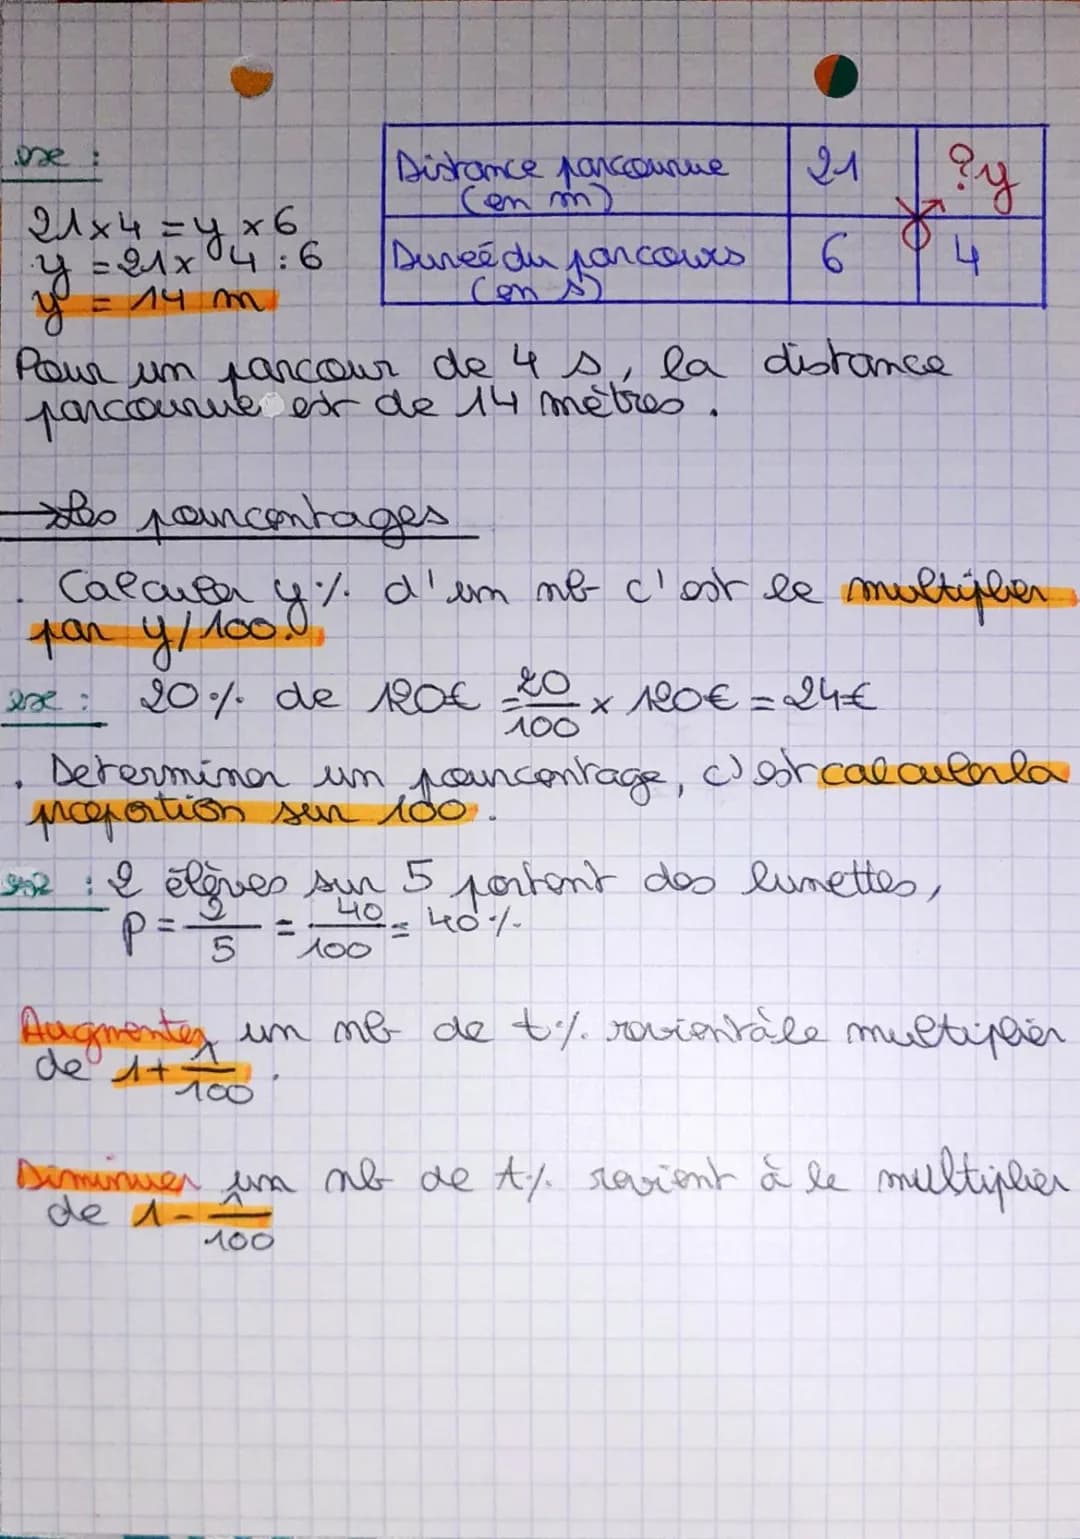 ex :
Distance parcourue 21 ? y
(en m)
21 x 4 = y x 6
y = 21 x 4 : 6
Dureé du parcours 6 4
(en s)
y = 14 m
Pour un parcour de 4 s, la distance
parcourue est de 14 mètres.
→ Les pourcentages
. Calculer y % d'un nb c'est le multiplier
par y/100.
ex : 20 % de 120€ = 20/100 x 120€ = 24€
. Determiner un pourcentage, c'est calculer la
proportion sur 100.
ex2 : 2 élèves sur 5 portent des lunettes,
P = 2/5 = 40/100 = 40 %
Augmenter un nb de t % revient à le multiplier
de 1 + 1/100.
Diminuer un nb de t % revient à le multiplier
de 1 - 1/100